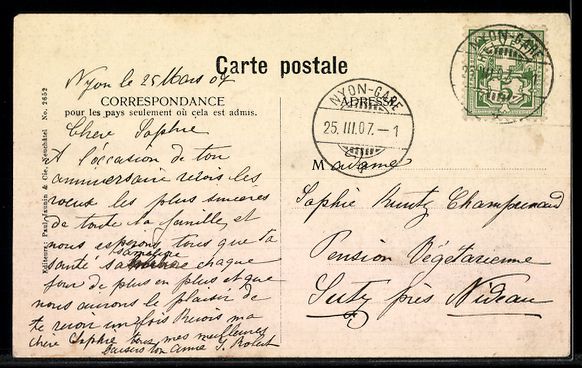 Carte postale
Nyon le 25 Mars 07
CORRESPONDANCE
pour les pays seulement où cela est admis.
Chère Sophie
A l'occasion de ton
anniversaire reçois les
voeux les plus sincères
de toute la famille, et
nous espérons tous que ta
santé s'améliore chaque
jour de plus en plus et que
nous aurons le plaisir de
te revoir un fois Reçois ma
chère Sophie tous mes meilleures
baisers ton amie J. Robert
Editeurs: Paul Jaunin & Cie, Neuchâtel No. 2652
ADRESSE
NYON-GARE
25. III. 07. – 1
NYON-GARE
25. III. 07. – 1
HELVETIA
5
Madame
Sophie Champrenaud
Pension Végétarienne
Suty près Nideau